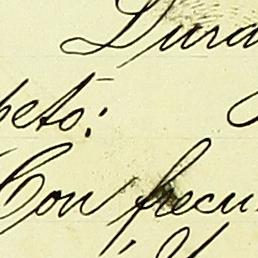 Dura
peto:
Con frecu